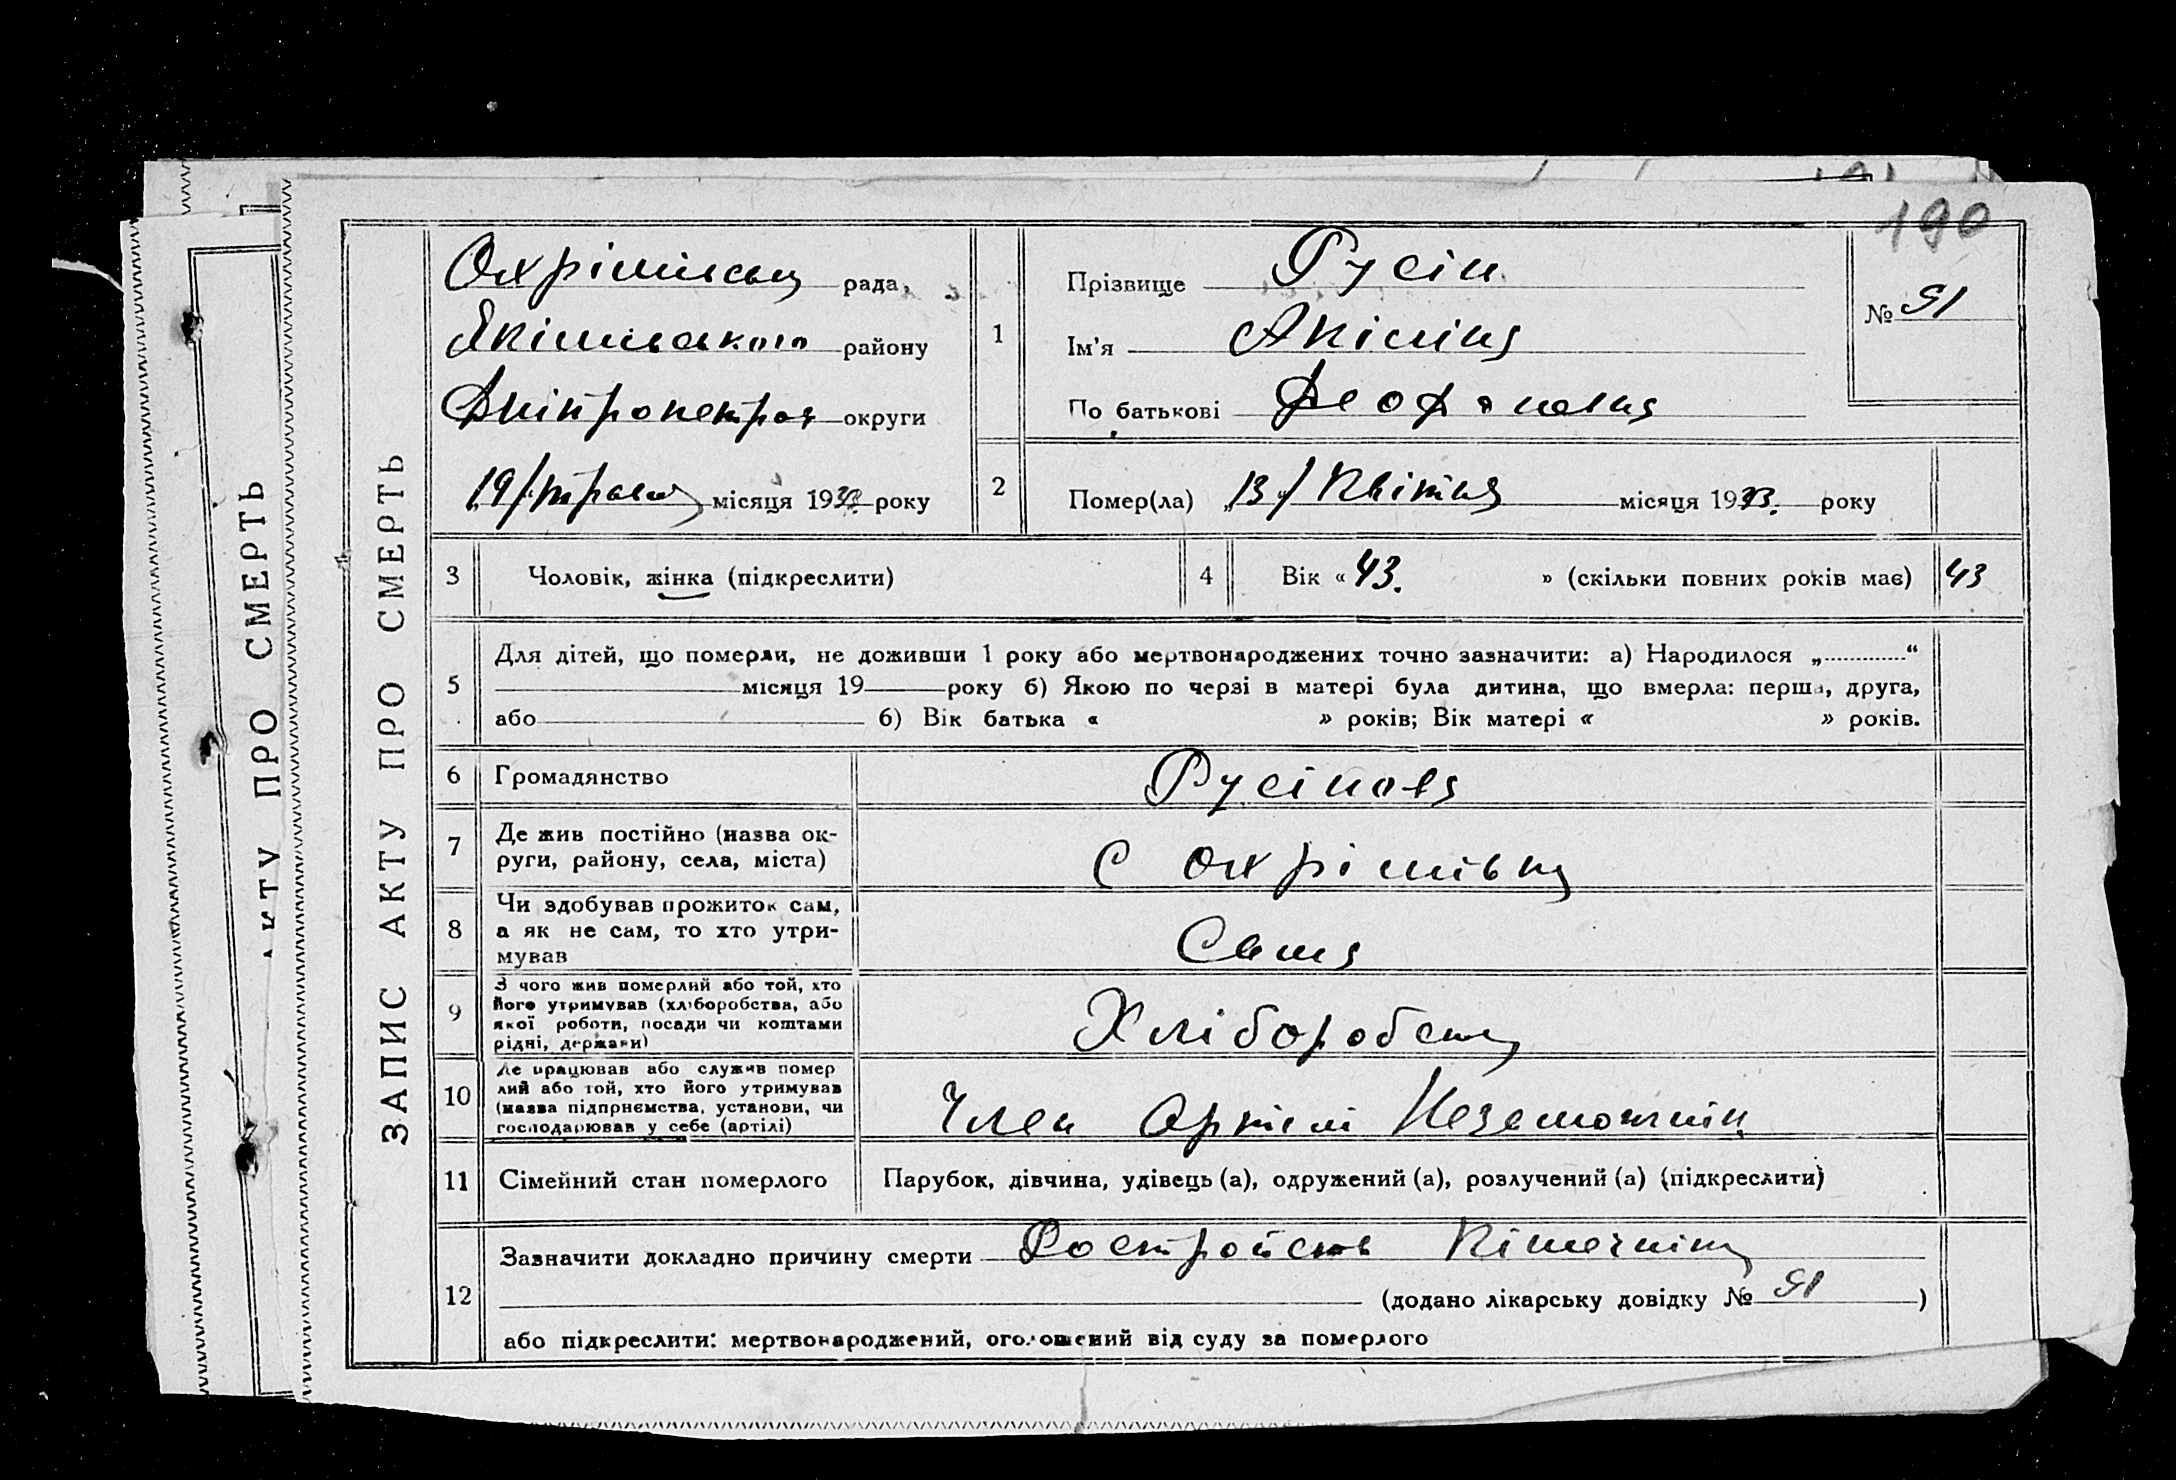 190
ЗАПИС АКТУ ПРО СМЕРТЬ
АКТУ ПРО СМЕРТЬ
Охрімівська рада,
Якімівського району
Дніпропетров округи
19/травня місяця 1933 року
1
Прізвище Русін
Ім'я Акіліна
По батькові Феофановна
№ 91
2
Помер(ла) „13/ Квітня місяця 1933. року
3 Чоловік, жінка (підкреслити)
4 Вік « 43. » (скільки повних років має) 43
5 Для дітей, що померли, не доживши 1 року або мертвонароджених точно зазначити: а) Народилося „ “
місяця 19 року б) Якою по черзі в матері була дитина, що вмерла: перша, друга,
або б) Вік батька « » років; Вік матері « » років.
6 Громадянство Русінова
7 Де жив постійно (назва ок-
руги, району, села, міста) С Охрімівка
8 Чи здобував прожиток сам,
а як не сам, то хто утри-
мував Сама
9 З чого жив померлий або той, хто
його утримував (хліборобства, або
якої роботи, посади чи коштами
рідні, держави) Хліборобства
10 Де працював або служив помер
лий або той, хто його утримував
(назва підприємства, установи, чи
господарював у себе (артілі) Член Артілі Незаможник
11 Сімейний стан померлого Парубок, дівчина, удівець (а), одружений (а), розлучений (а) (підкреслити)
12 Зазначити докладно причину смерти Ростройств Кішечніка
(додано лікарську довідку № 91 )
або підкреслити: мертвонароджений, оголошений від суду за померлого